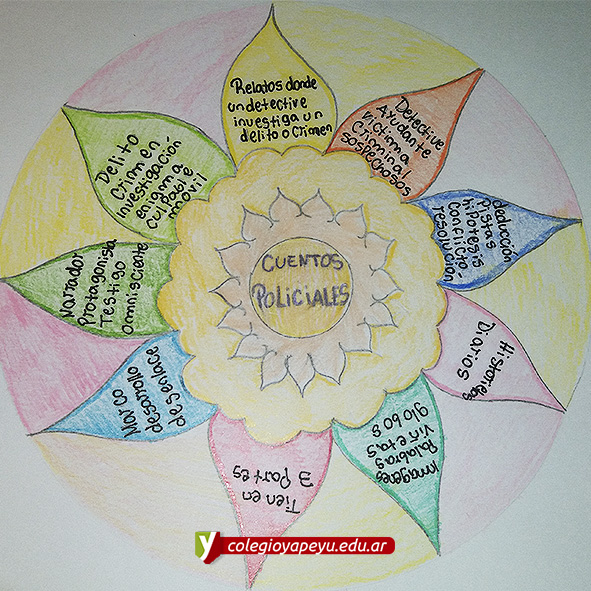 CUENTOS
POLICIALES
Relatos donde
un detective
investiga un
delito o Crimen
Detective
Ayudante
Victima
Criminal
sospechosos
deducción
Pistas
hipotesis
resolución
Historietas
Diarios
Imagenes
Palabras
Viñetas
globos
Tienen
3 Partes
Marco
desarrollo
desenlace
Narrador
Protagonista
Testigo
Omnisciente
Delito
Crimen
Investigación
enigma
Culpable
móvil
y colegioyapeyu.edu.ar